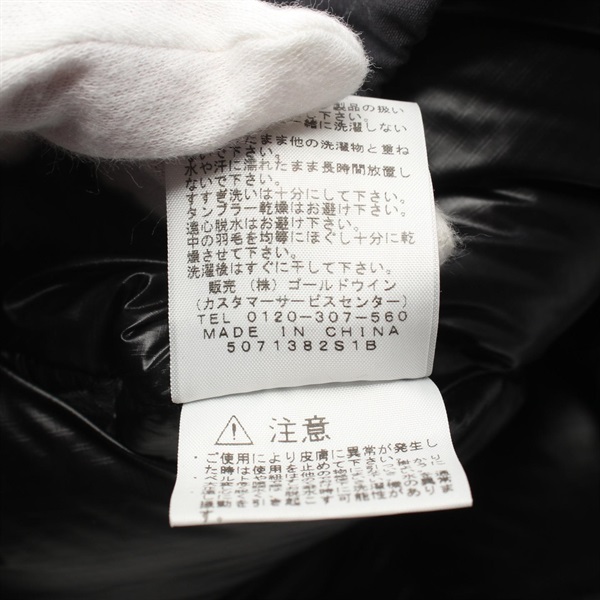 製品の扱い
下さい。
一緒に洗濯しない
下さい。
たまま他の洗濯物と重ね
水や汗に濡れたまま長時間放置し
ないで下さい。
すすぎ洗いは十分にして下さい。
タンブラー乾燥はお避け下さい。
遠心脱水はお避け下さい。
中の羽毛を均等にほぐし十分に乾
燥させて下さい。
洗濯後はすぐに干して下さい。
販売 (株) ゴールドウイン
(カスタマーサービスセンター)
TEL 0120-307-560
MADE IN CHINA
5071382S1B
注意
・ご使用により皮膚に異常が発生し
た時は使用を止めて下さい。